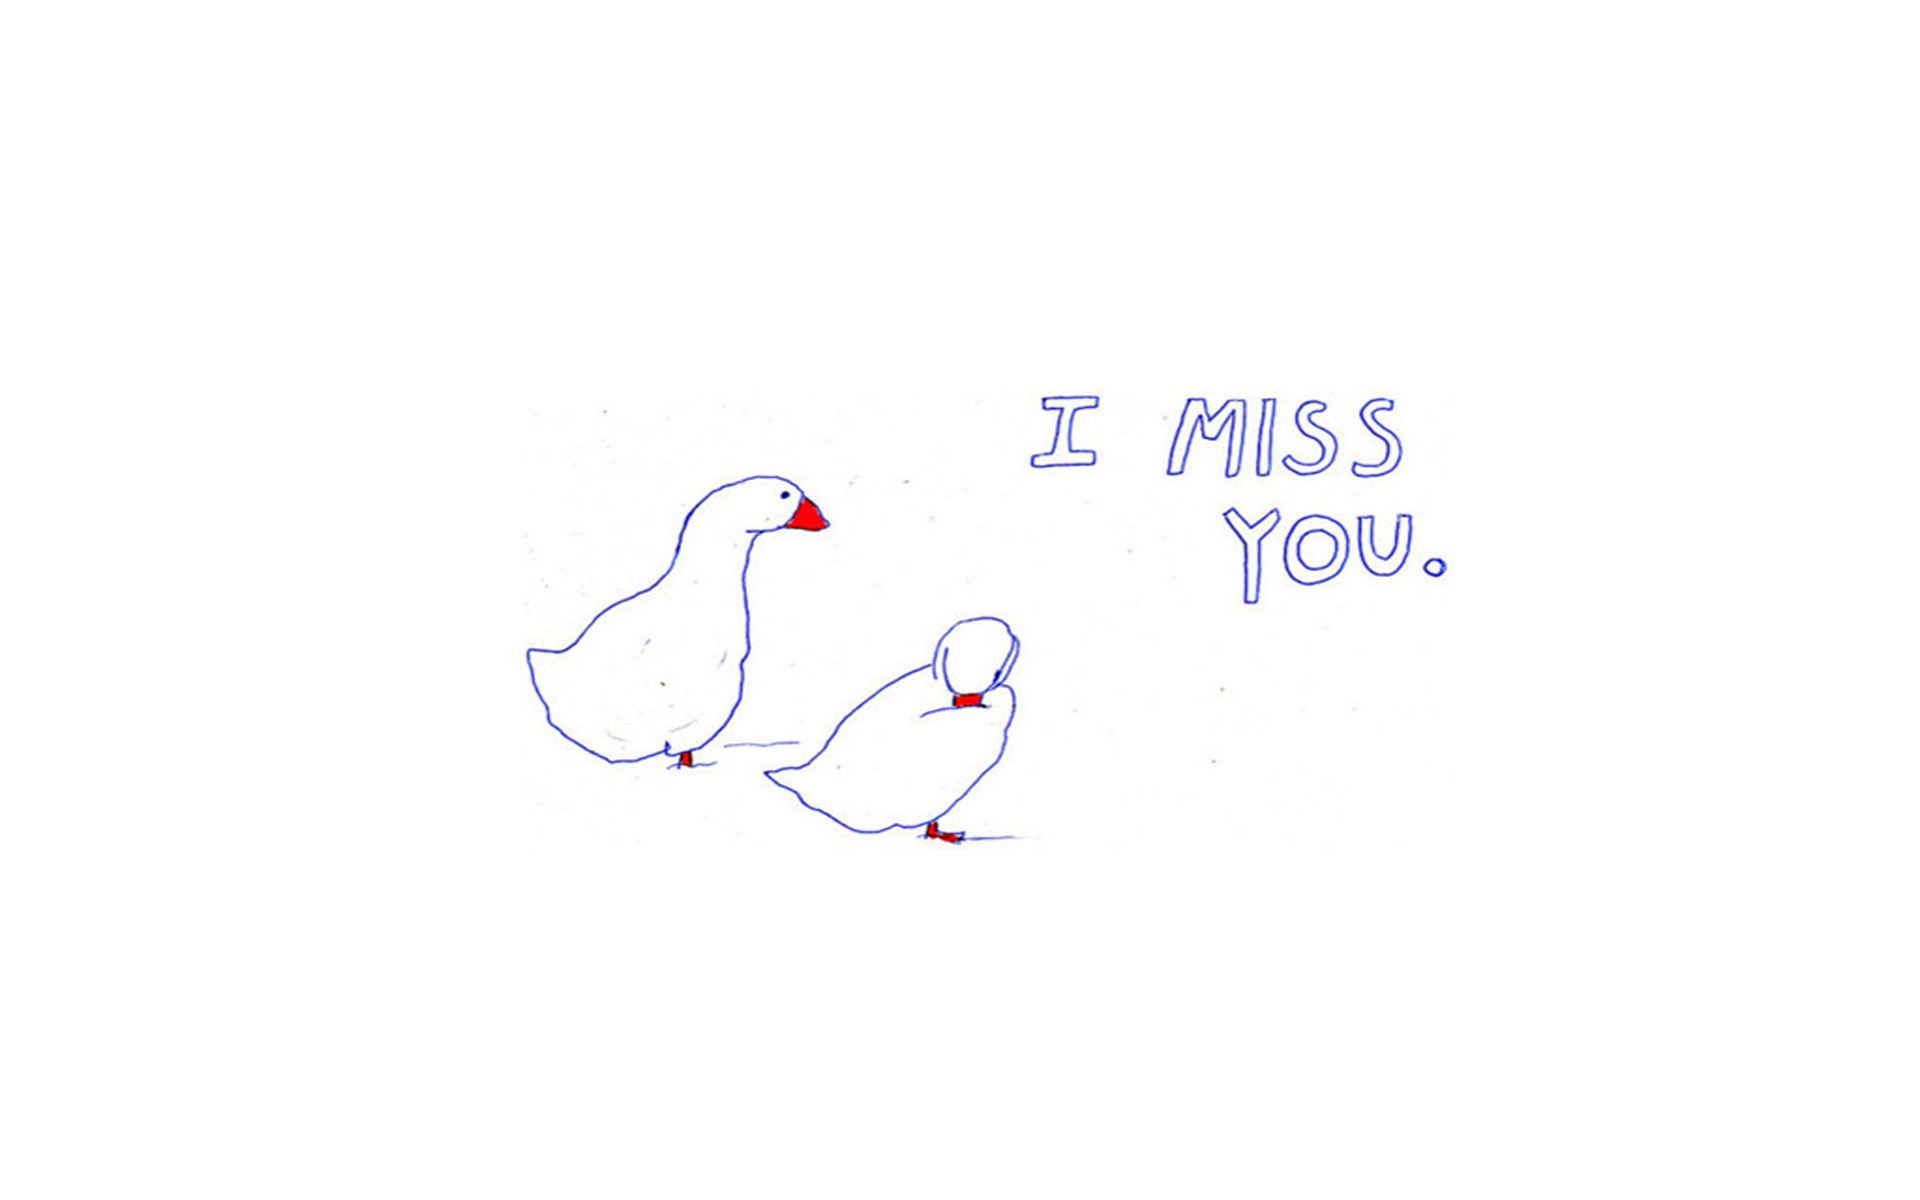 I MISS
YOU.